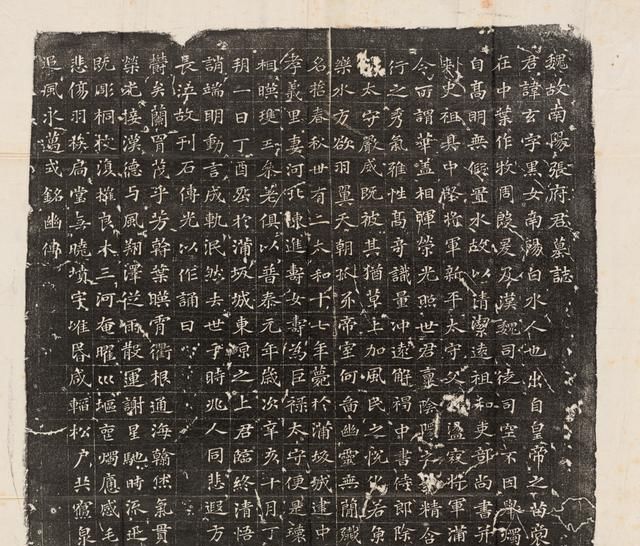 魏故南陽張府君墓誌
君諱玄字黑女南陽白水人也出自皇帝之苗裔
在中葉作牧周殷爰及漢魏司徒司空不因舉燭
自高明無假置水故以清潔遠祖和吏部尚書并
刺史祖具中堅將軍新平太守父盪寇將軍蒲
令所謂華蓋相暉榮光照世君稟陰陽之精含
行之秀氣雅性高奇識量沖遠解褐中書侍郎除
太守嚴威既被其猶草上加風民之悅化若魚
樂水方欲羽翼天朝抓牙帝室何啚幽靈無簡殲
名哲春秋卅有二太和十七年薨於蒲坂城建中
孝義里妻河北陳進壽女壽為巨祿太守便是瓌
相暎瓊玉參差俱以普泰元年歲次辛亥十月丁
玥一日丁酉塟於蒲坂城東原之上君臨終清悟
誚端明動言成軌泯然去世于時兆人同悲遐方
長泣故刊石傳光以作誦曰
欝矣蘭冑茂乎芳幹葉暎霄衢根通海翰倐氣貫
榮光接漢德与風翔澤從雨散運謝星馳時流迅
既彫桐枝復摧良木三河奄曜巛塸喪燭痝感毛
悲傷羽族扃堂無曉墳宇唯昏咸輼松戶共寢泉
追風永邁式銘幽傳